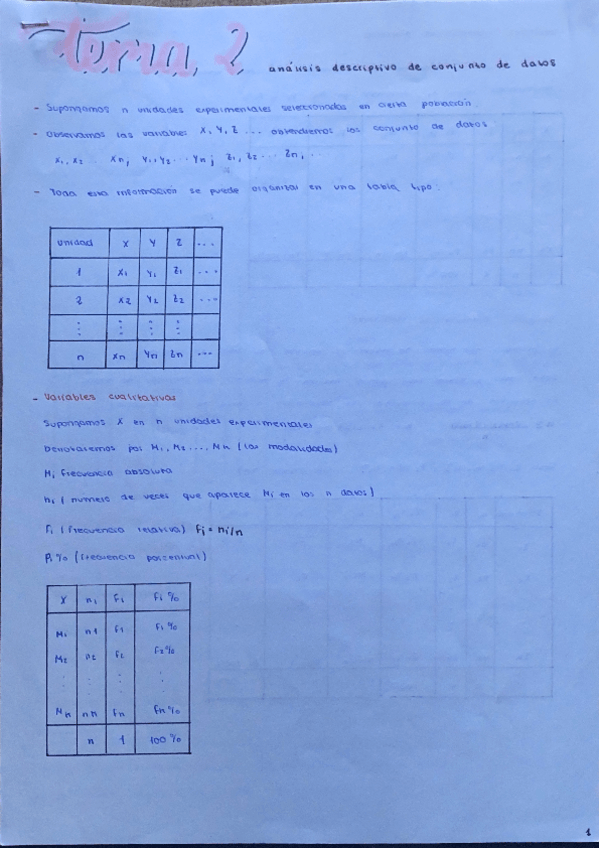 Tema 2 análisis descriptivo de conjunto de datos
- Supongamos n unidades experimentales seleccionadas en cierta población
- Observamos las variables X, Y, Z ... obtendremos los conjunto de datos
x1, x2 ... xn; y1, y2 ... yn; z1, z2 ... zn, ...
- Toda esta información se puede organizar en una tabla tipo:
unidad X Y Z ...
1 x1 y1 z1 ...
2 x2 y2 z2 ...
⋮ ⋮ ⋮ ⋮
n xn yn zn ...
- Variables cualitativas
Supongamos X en n unidades experimentales
Denotaremos por M1, M2 ..., Mk (las modalidades)
Mi frecuencia absoluta
ni (numero de veces que aparece Mi en los n datos)
Fi (frecuencia relativa) Fi = ni/n
Pi % (frecuencia porcentual)
X ni fi fi %
M1 n1 f1 f1 %
M2 n2 f2 f2 %
⋮ ⋮ ⋮ ⋮
Mk nk fk fk %
n 1 100 %
1